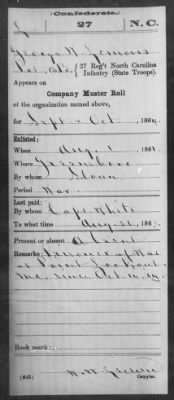 Confederate.
27 N.C.
George W.
Pvt., Co.
27 Reg't North Carolina
Infantry (State Troops).
Appears on
Company Muster Roll
of the organization named above,
for Sept & Oct, 1864.
Enlisted:
When Aug 1, 186
Where Greensboro
By whom Sloan
Period War
Last paid:
By whom Capt White
To what time Aug 31, 186
Present or absent Absent
Remarks: Prisoner of War
at Point Lookout
Md. since Oct 14, 63.
Book mark:
(642)
Copyist.